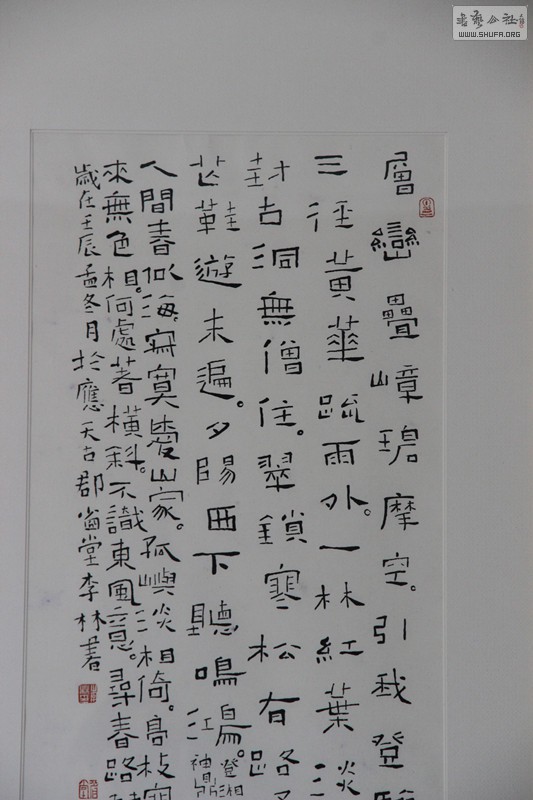 層巒疊嶂碧摩空。引我登臨
三徑黃葉疏雨外。一林紅葉
封古洞無僧住。翠鎖寒松有路
芒鞋遊未遍。夕陽西下聽鳴
人間春似海。寂寞愛山家。孤嶼淡相倚。高枝寒
來無色相。何處著橫斜。不識東風意。尋春路
歲在壬辰孟冬月於應天古郡 堂李林書
WWW.SHUFA.ORG